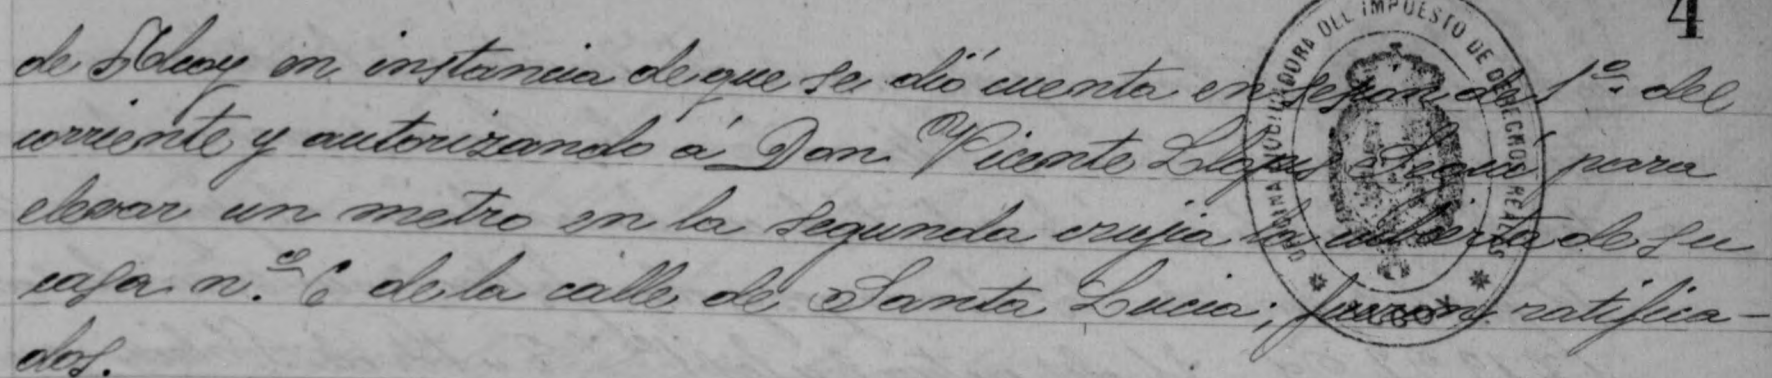 4
OFICINA LIQUIDADORA DEL IMPUESTO DE DERECHOS REALES
ALCOY
de Alcoy en instancia de que se dió cuenta en sesión del 1º del
corriente y autorizando á Don Vicente para
elevar un metro en la segunda crujia la cubierta de su
casa n.º 6 de la calle de Santa Lucia; fueron ratifica-
dos.